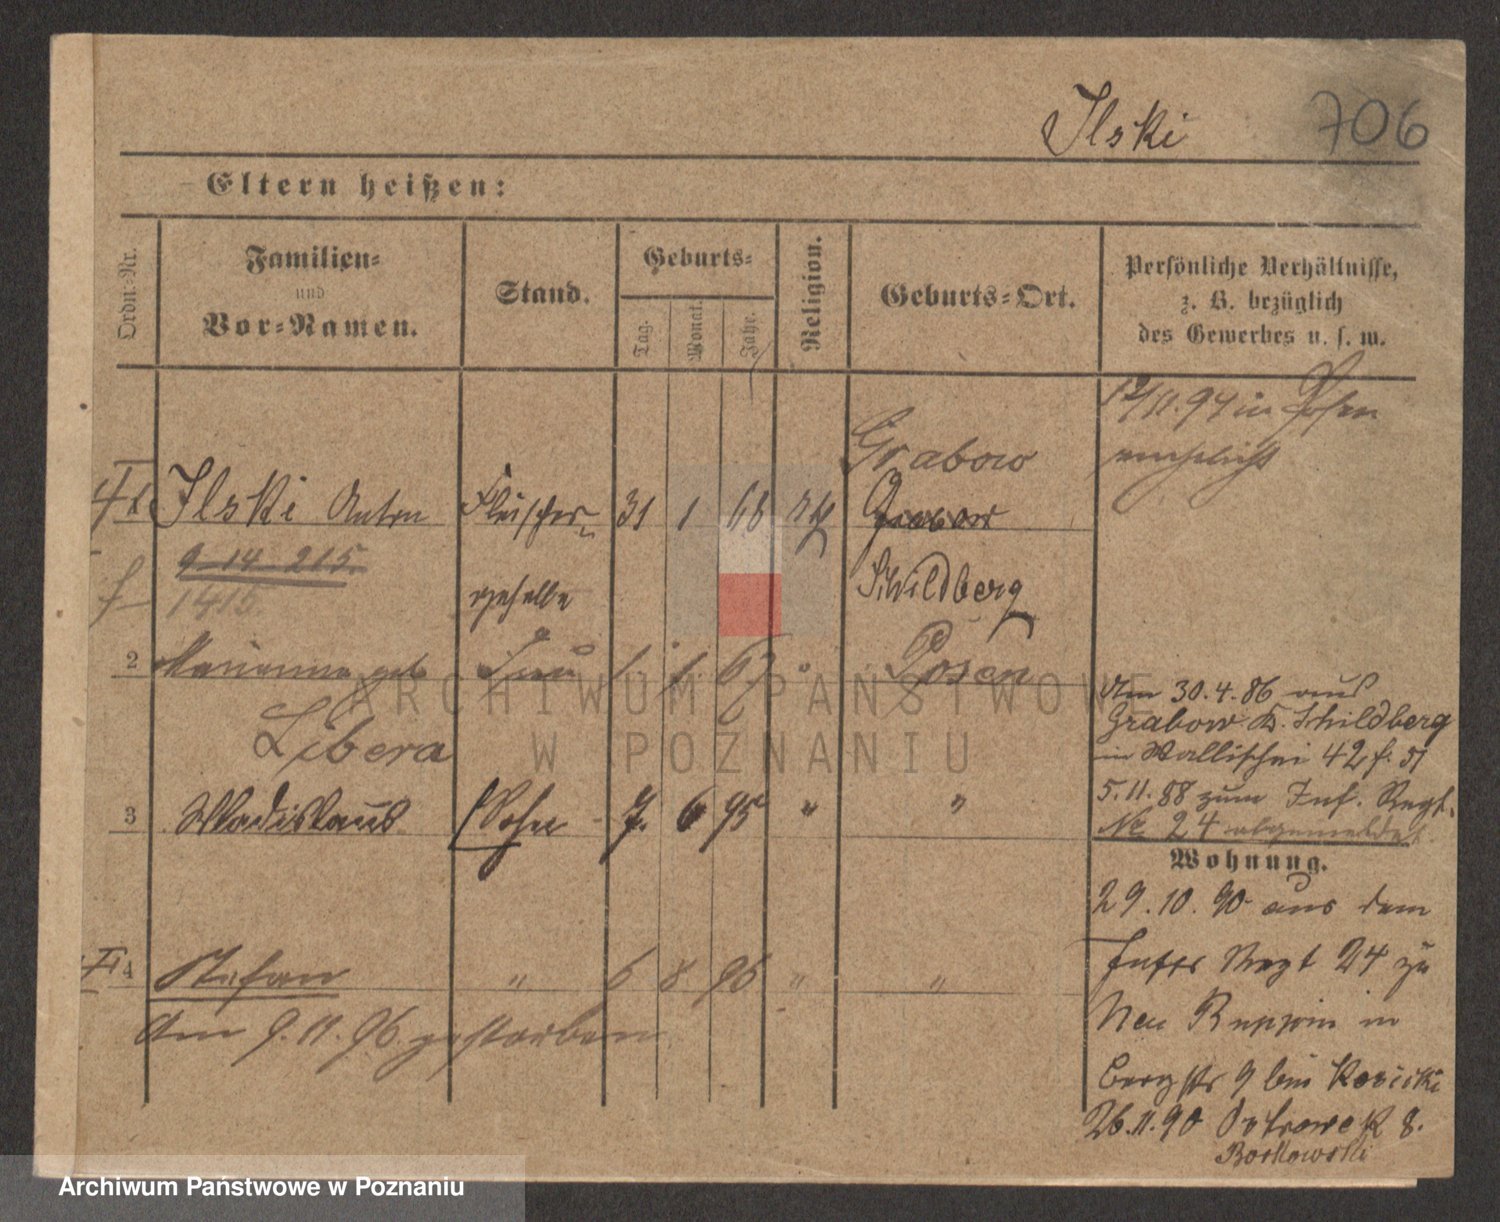 Ilski 706
Eltern heißen:
Ordn.-Nr.
Familien-
und
Vor-Namen.
Stand.
Geburts-
Tag.
Monat.
Jahr.
Religion.
Geburts-Ort.
Persönliche Verhältnisse,
z. B. bezüglich
des Gewerbes u. s. w.
12/11.94 in Posen
verehelicht
Grabow
Ilski Anton Fleischer- 31 1 68 Grabow
9 14 215.
1415. geselle Schildberg
2 Marianna geb Frau 67 " Posen
Libera
3 Wladislaus Sohn 7. 6 95 " "
4 Stefan " 6 8 96 " "
Am 9.11.96 gestorben
Am 30.4.86 aus
Grabow K. Schildberg
in Wallischei 42 f. 51
5.11.88 zum Inf. Regt.
No 24 abgemeldet
Wohnung.
29.10.90 aus dem
Regt 24 zu
Neu Ruppin in
Bergstr 9 bei Kosicki
26.11.90 Ostrowek 8.
Borkowski
ARCHIWUM PAŃSTWOWE
W POZNANIU
Archiwum Państwowe w Poznaniu